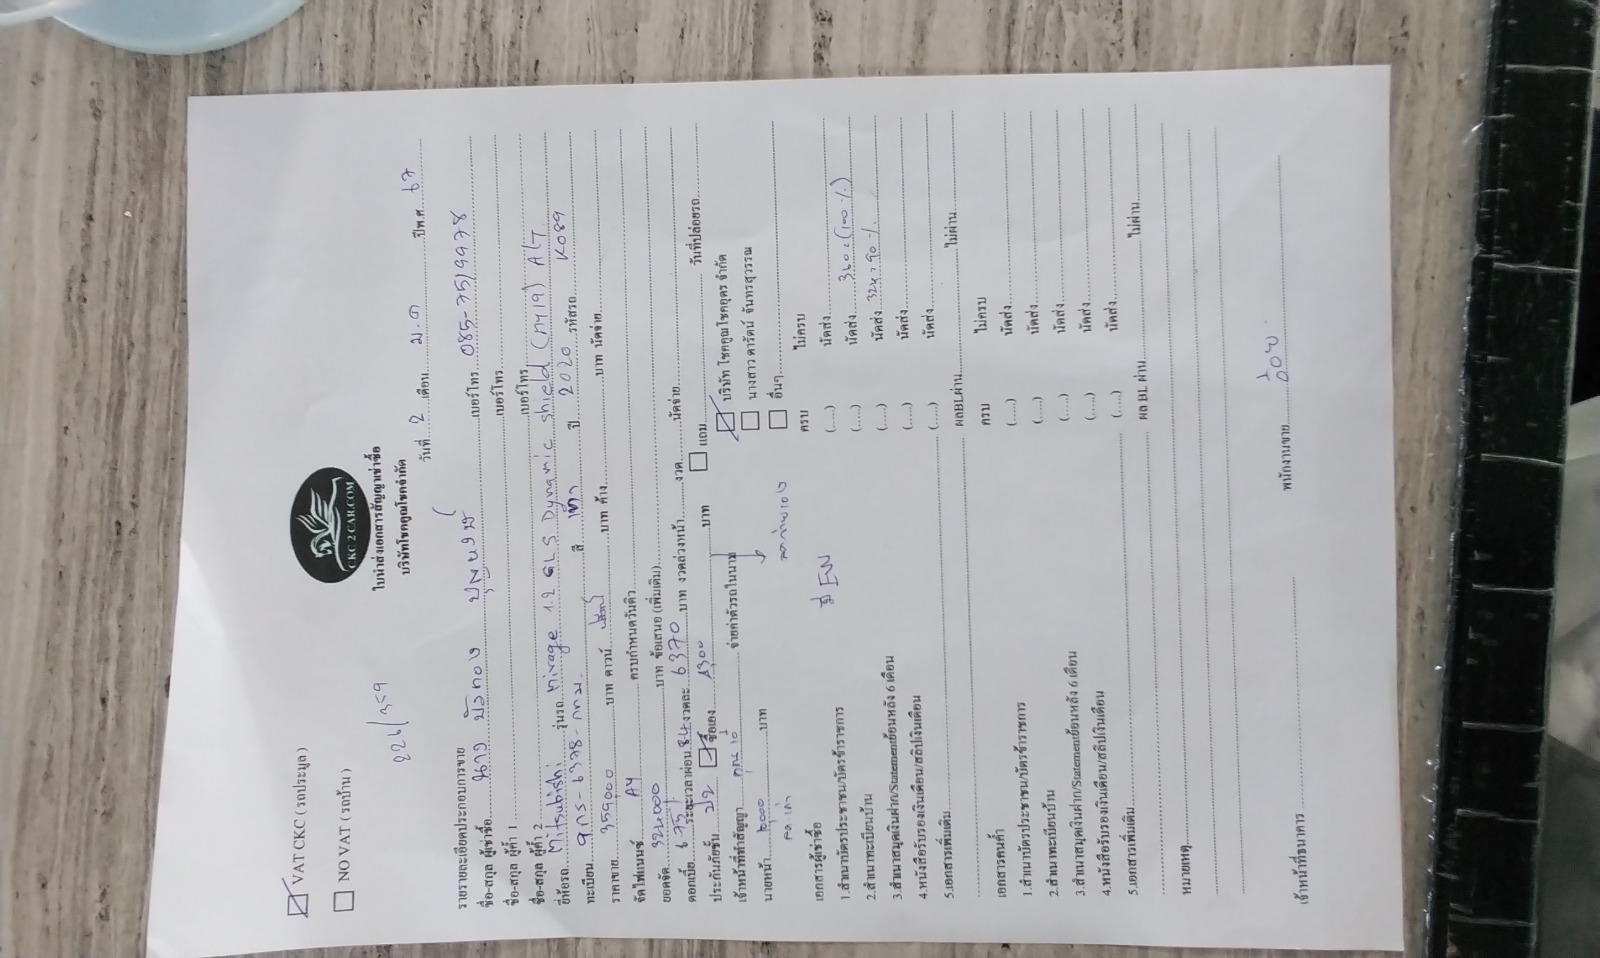 VAT CKC ( รถประมูล )
NO VAT ( รถบ้าน )
CKC 2 CAR.COM
ใบนำส่งเอกสารสัญญาเช่าซื้อ
บริษัทโชคคูณโชคจำกัด
วันที่ 2 เดือน ม.ค ปีพ.ศ 67
รายรายละเอียดประกอบการขาย
ชื่อ-สกุล ผู้เช่าซื้อ นาง บัวทอง เบอร์โทร 085-7519978
ชื่อ-สกุล ผู้ค้ำ 1 เบอร์โทร
ชื่อ-สกุล ผู้ค้ำ 2 เบอร์โทร
ยี่ห้อรถ Mitsubishi รุ่นรถ Mirage 1.2 GLS Dynamic Shield (MY19) A/T
ทะเบียน 9กร-6378-กทม. สี เทา ปี 2020 รหัสรถ K089
ราคาขาย 359,000 บาท ดาวน์ บาท ค้าง บาท นัดจ่าย
จัดไฟแนนซ์ AY ครบกำหนดวันคิว
ยอดจัด 324000 บาท ข้อเสนอ (เพิ่มเติม)
ดอกเบี้ย 6.75 ระยะเวลาผ่อน 84 งวดละ 6370 บาท งวดล่วงหน้า งวด นัดจ่าย
ประกันภัยชั้น ป2 ซื้อเอง บาท แถม วันที่ปล่อยรถ
เจ้าหน้าที่ทำสัญญา จ่ายค่าตัวรถในนาม บริษัท โชคคูณโชคอุดร จำกัด
นายหน้า บาท นางสาว ดารัตน์ จันทรสุวรรณ
อื่นๆ
เอกสารผู้เช่าซื้อ ครบ ไม่ครบ
1.สำเนาบัตรประชาชน/บัตรข้าราชการ (.....) นัดส่ง
2.สำเนาทะเบียนบ้าน (.....) นัดส่ง 360 (100%)
3.สำเนาสมุดเงินฝาก/Statementย้อนหลัง 6 เดือน (.....) นัดส่ง 324 90%
4.หนังสือรับรองเงินเดือน/สลิปเงินเดือน (.....) นัดส่ง
5.เอกสารเพิ่มเติม (.....) นัดส่ง
ผลBLผ่าน ไม่ผ่าน
เอกสารคนค้ำ ครบ ไม่ครบ
1.สำเนาบัตรประชาชน/บัตรข้าราชการ (.....) นัดส่ง
2.สำเนาทะเบียนบ้าน (.....) นัดส่ง
3.สำเนาสมุดเงินฝาก/Statementย้อนหลัง 6 เดือน (.....) นัดส่ง
4.หนังสือรับรองเงินเดือน/สลิปเงินเดือน (.....) นัดส่ง
5.เอกสารเพิ่มเติม (.....) นัดส่ง
ผล BL ผ่าน ไม่ผ่าน
หมายเหตุ
เจ้าหน้าที่ธนาคาร พนักงานขาย